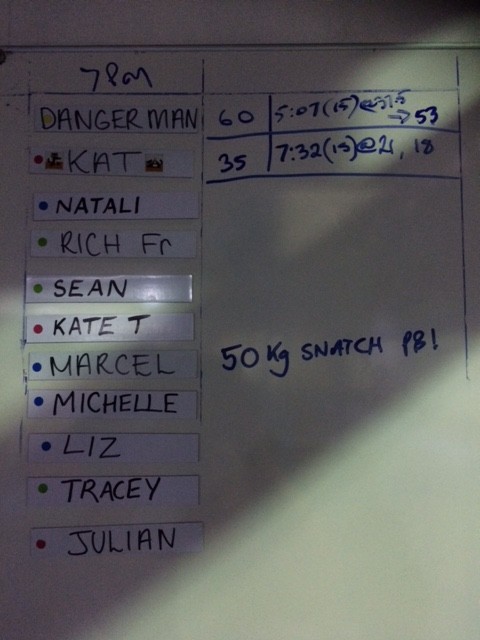 7PM
DANGERMAN 60 5:07(15)@37.5
→53
KAT 35 7:32(15)@21, 18
NATALI
RICH Fr
SEAN
KATE T
MARCEL 50 Kg SNATCH PB!
MICHELLE
LIZ
TRACEY
JULIAN